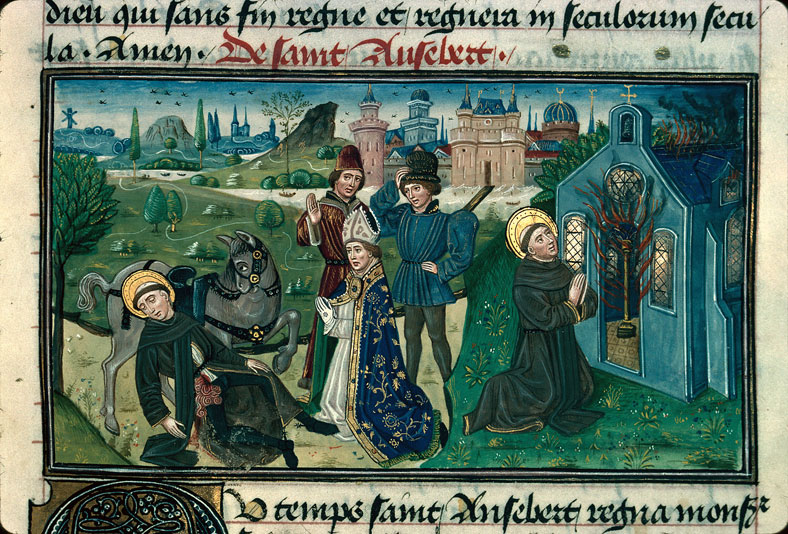 dieu qui sans fin regne et regnera in seculorum secu
la . Amen . De saint Ausebert .
U temps saint Ausebert regna mons